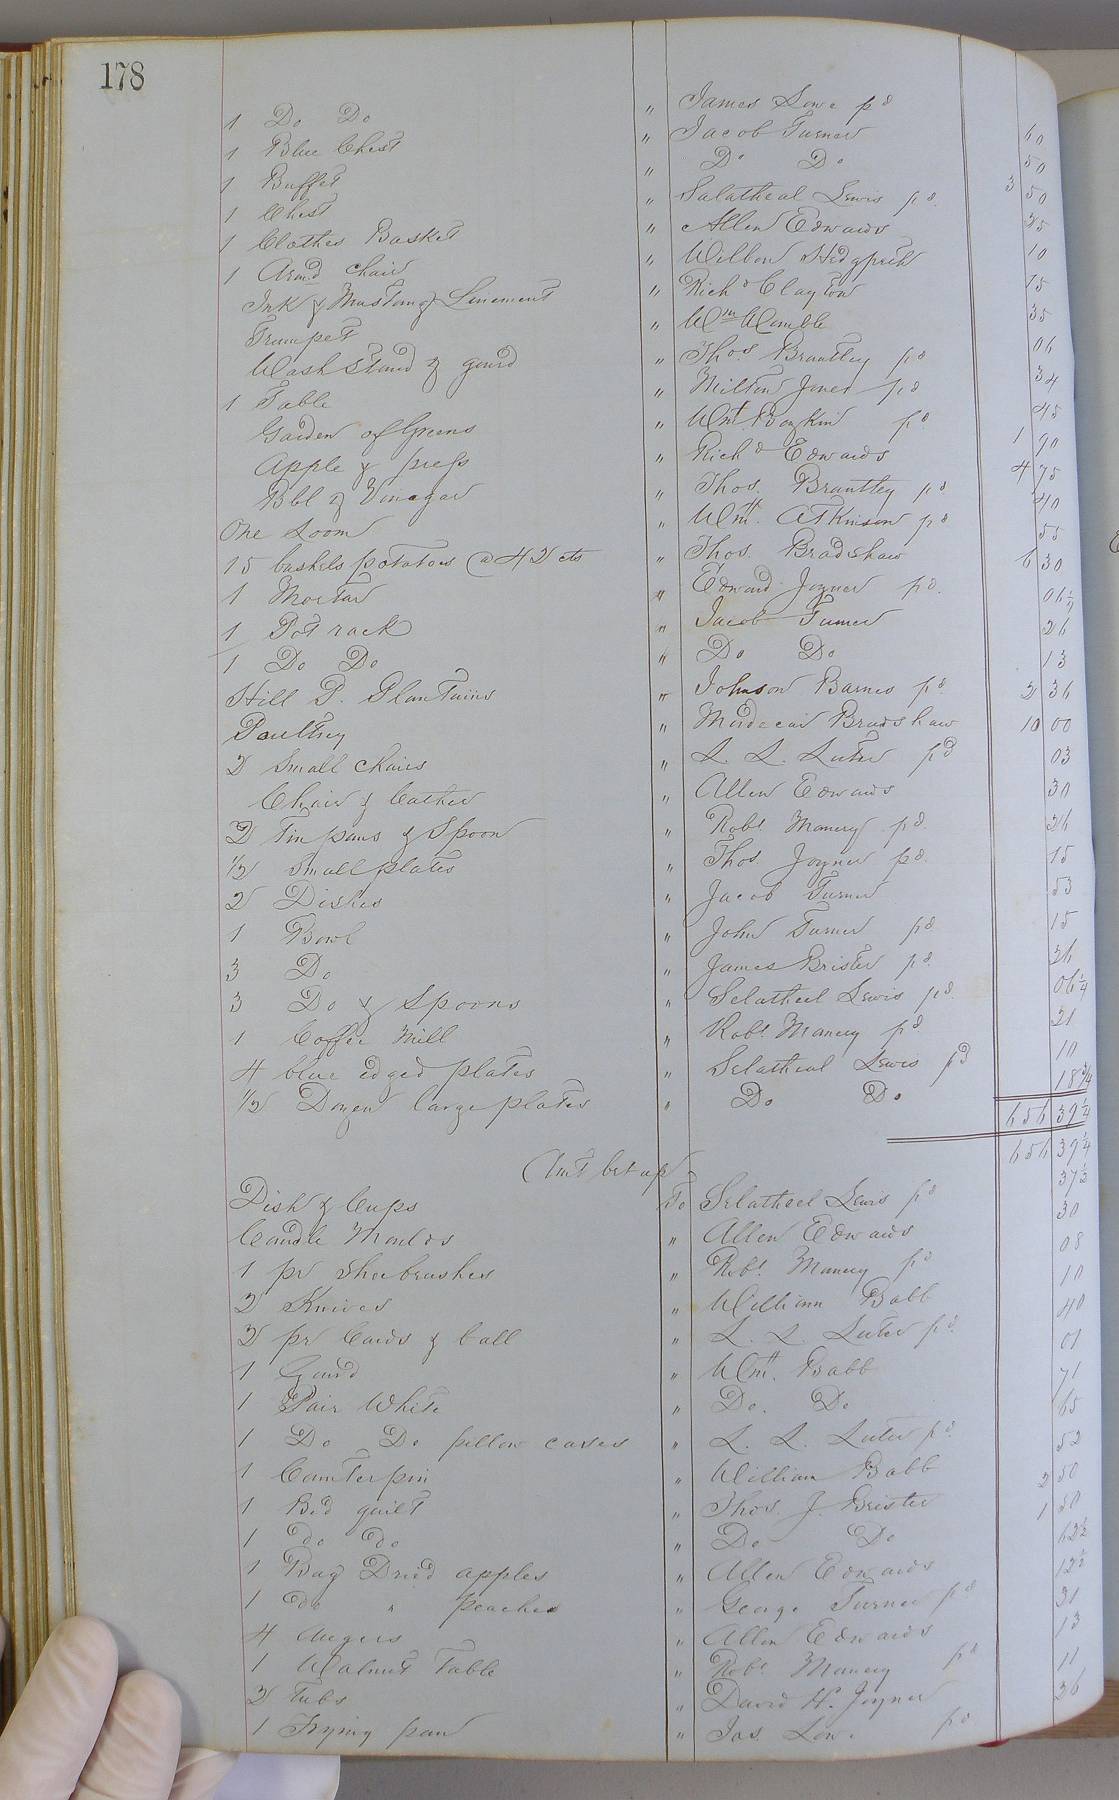 178
1 Do Do " James Lowe pd
1 Blue Chest " Jacob Turner 60
1 Buffet " Do Do 50
1 Chest " Salatheal Lewis pd. 3 50
1 Clothes Basket " Allen Edwards 35
1 Armd chair " Wilbon Hedgpeth 10
Ink & Mustang Linement " Richd Clayton 15
Trumpet " Wm Womble 35
Wash Stand & gourd " Thos. Brantley pd 06
1 Table " Milton Jones pd 34
Garden of Greens " Wm. Boykin pd 45
Apple & press " Richd Edwards 1 90
Bbl of Vinegar " Thos. Brantley pd 4 75
One Loom " Wm. Atkinson pd 40
15 bushels potatoes @ 42 cts " Thos. Bradshaw 55
1 Mortar " Edward Joyner pd. 6 30
1 Pot rack " Jacob Turner 06¼
1 Do Do " Do Do 26
Hill P. Plantains " Johnson Barnes pd. 13
Poultry " Mordecai Bradshaw 2 36
2 Small Chairs " L. L. Luter pd 10 00
Chair & " Allen Edwards 03
2 Tin pans & Spoon " Robt Manery pd. 30
½ Small plates " Thos. Joyner pd. 26
2 Dishes " Jacob Turner 15
1 Bowl " John Turner pd 53
3 Do " James Brister pd. 15
3 Do & Spoons " Selatheel Lewis pd. 26
1 Coffee Mill " Robt Manery pd 06¼
4 blue edged plates " Selatheal Lewis pd 21
½ Dozen large plates " Do Do 10
18¾
656 39¼
Amt brt up 656 39¼
Dish & Cups To Selatheel Lewis pd 37½
Candle Moulds " Allen Edwards 30
1 pr Shoebrushes " Robt. Manery pd 08
2 Knives " William Babb 10
2 pr Cards & ball " L. L. Luter pd. 40
1 Gourd " Wm. Babb 01
1 Pair White " Do. Do 71
1 Do Do pillow cases " L. L. Luter pd. 65
1 Counterpin " William Babb 52
1 Bed quilt " Thos. J. Brister 2 50
1 Do Do " Do Do 1 50
1 Bag Dried apples " Allen Edwards 62½
1 Do " peaches " George Turner pd 12½
4 Augers " Allen Edwards 31
1 Walnut Table " Robt Manery pd 13
2 Tubs " David H. Joyner 11
1 Frying pan " Jas. Lowe pd 36